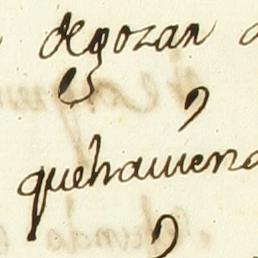 degozan
quehauiend